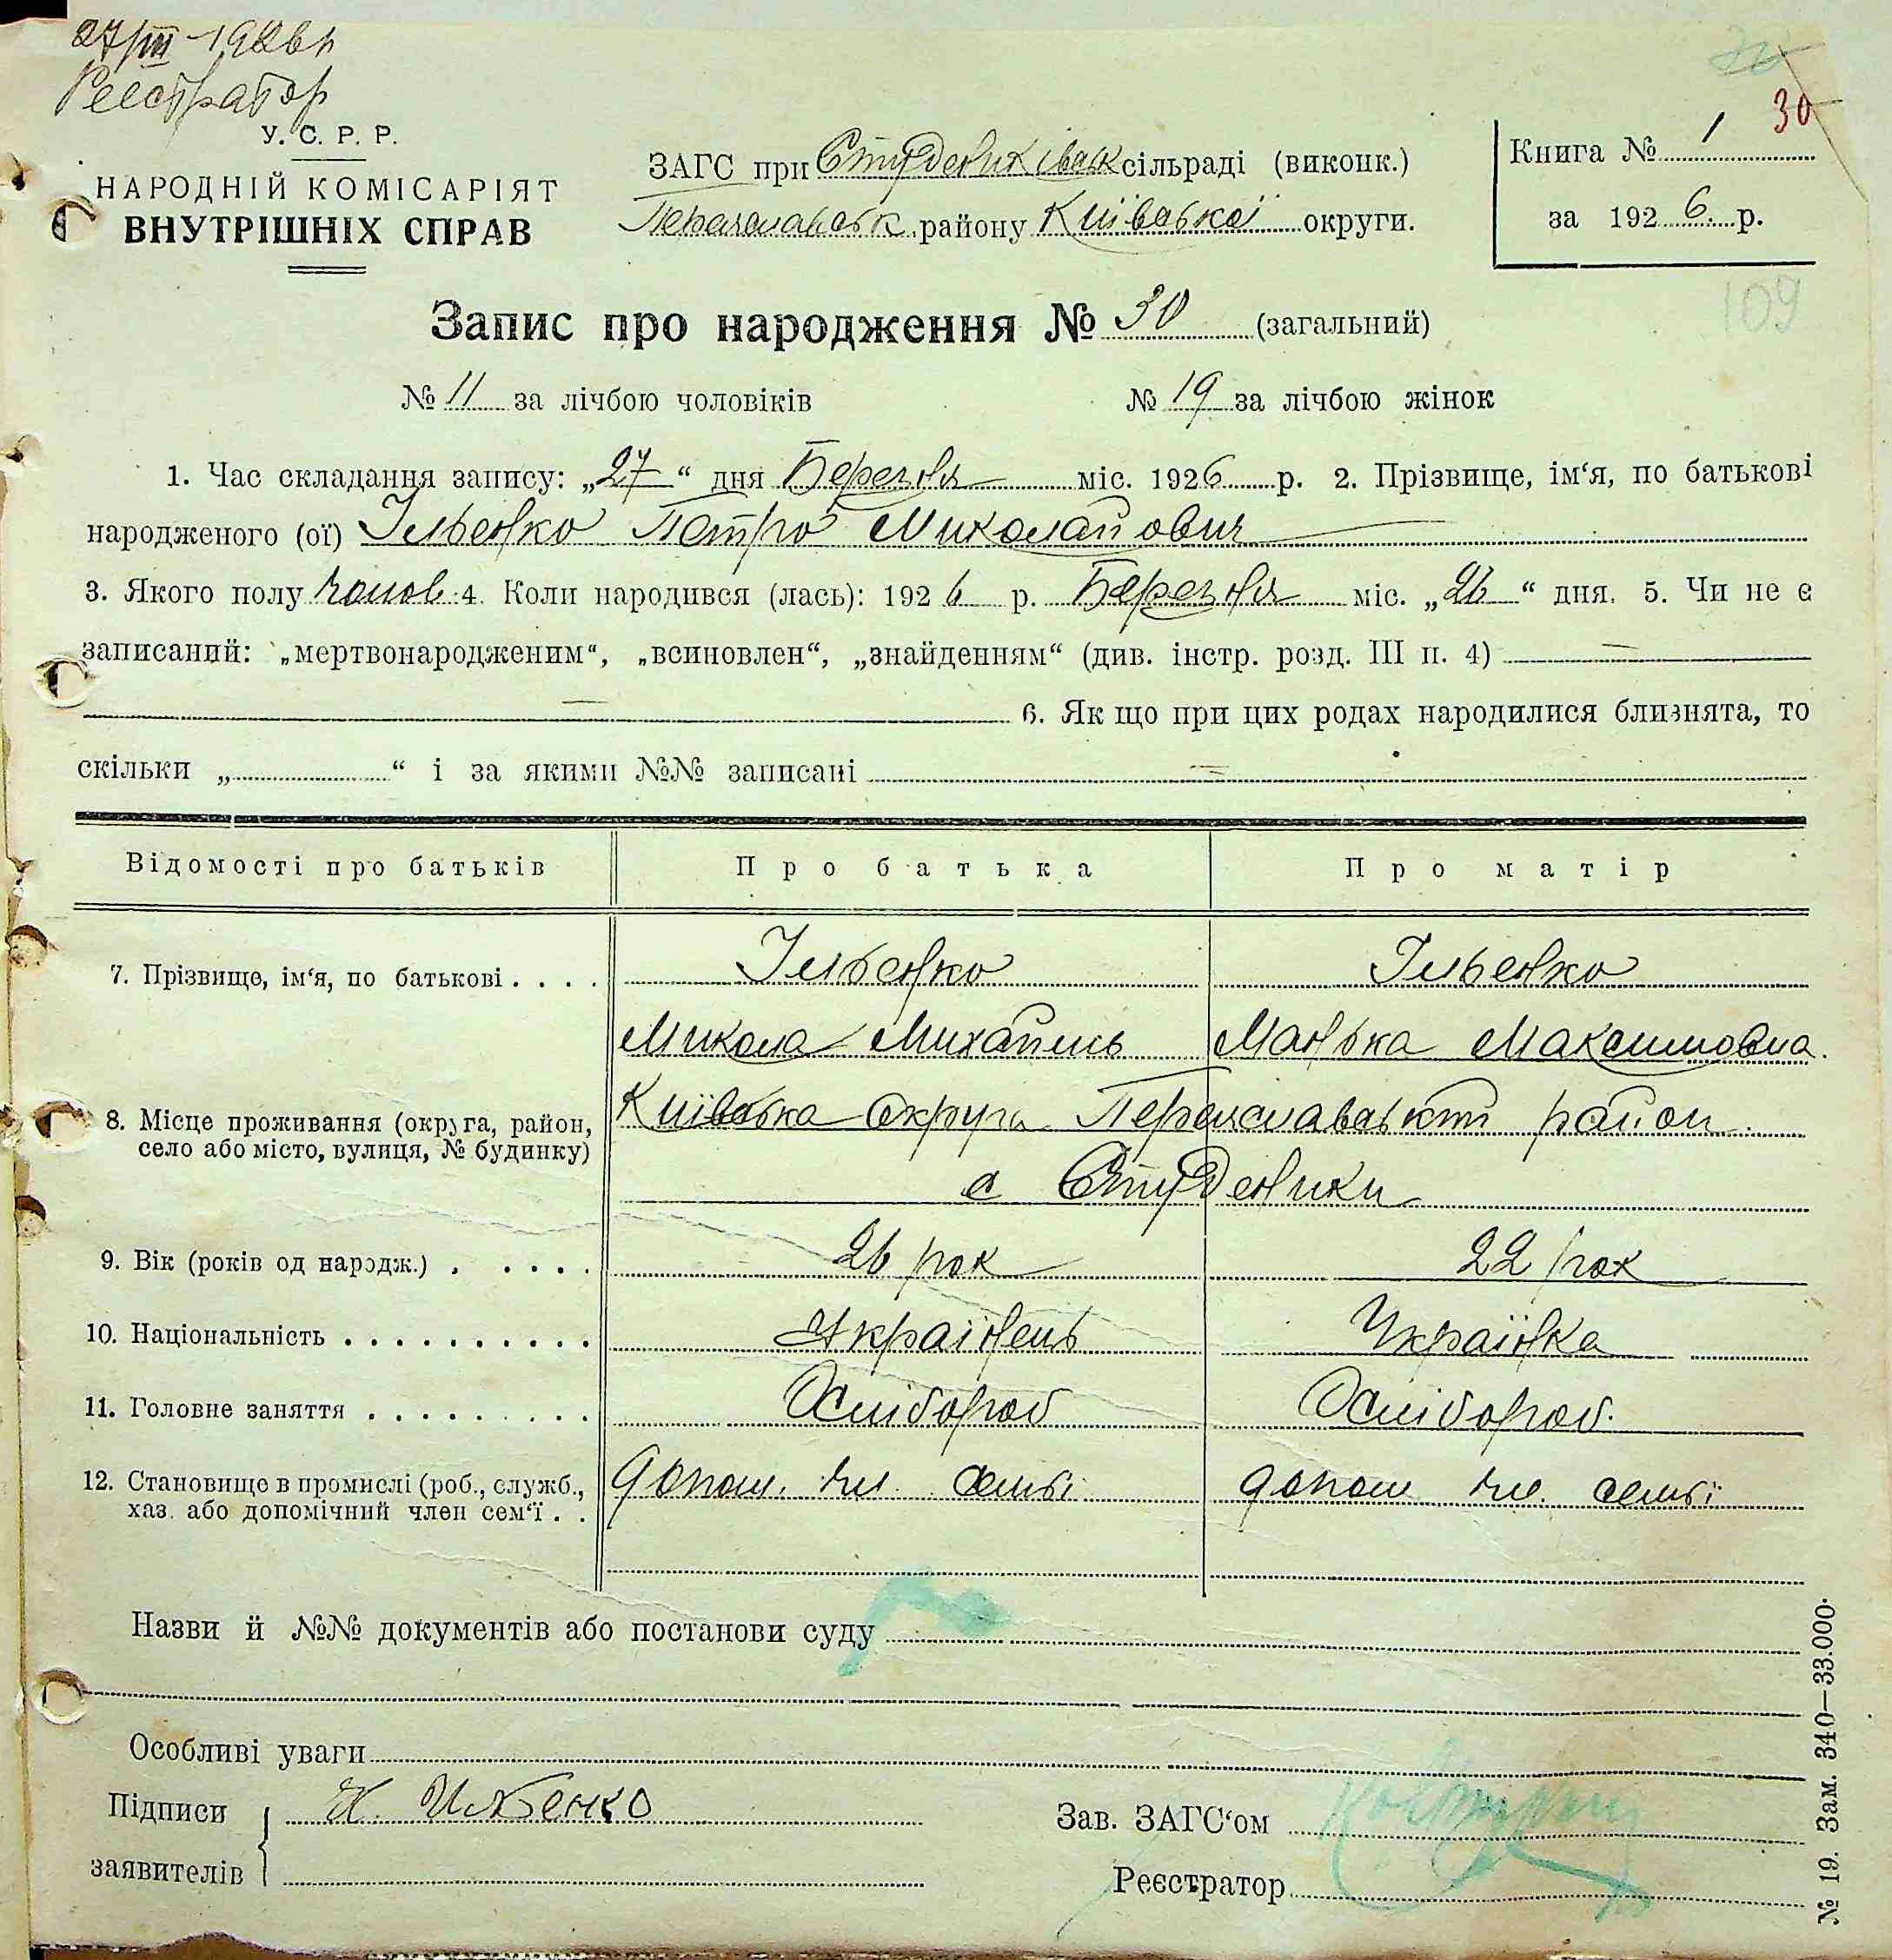 27/III-1926р
Реєстратор
У. С. Р. Р.
НАРОДНІЙ КОМІСАРІЯТ
ВНУТРІШНІХ СПРАВ
ЗАГС при Студениківськ сільраді (виконк.)
Переяславськ. району Київської округи.
30
Книга № 1
за 1926 р.
109
Запис про народження № 30 (загальний)
№ 11 за лічбою чоловіків № 19 за лічбою жінок
1. Час складання запису: „27“ дня Березня міс. 1926 р. 2. Прізвище, ім‘я, по батькові
народженого (ої) Ільєнко Петро Миколайович
3. Якого полу чолов. 4. Коли народився (лась): 1926 р. Березня міс. „26“ дня. 5. Чи не є
записаний: „мертвонародженим“, „всиновлен“, „знайденням“ (див. інстр. розд. III п. 4) —
— 6. Як що при цих родах народилися близнята, то
скільки „ “ і за якими №№ записані —
Відомості про батьків Про батька Про матір
7. Прізвище, ім‘я, по батькові . . . . Ільєнко Ільєнко
Микола Михайлів Манька Максимовна.
8. Місце проживання (округа, район, село або місто, вулиця, № будинку) Київська округа Переяславський район
с Студеники
9. Вік (років од народж.) . . . . . 26 рок 22 рок
10. Національність . . . . . . . . . . Українець Українка
11. Головне заняття . . . . . . . . . Хлібороб Хлібороб.
12. Становище в промислі (роб., служб., хаз. або допомічний член сем‘ї . . допом. чл. семьї допом чл. семьї
Назви й №№ документів або постанови суду
Особливі уваги
Підписи
заявителів
Н. Ильенко
Зав. ЗАГС‘ом
Реєстратор
№ 19. Зам. 340—33.000.